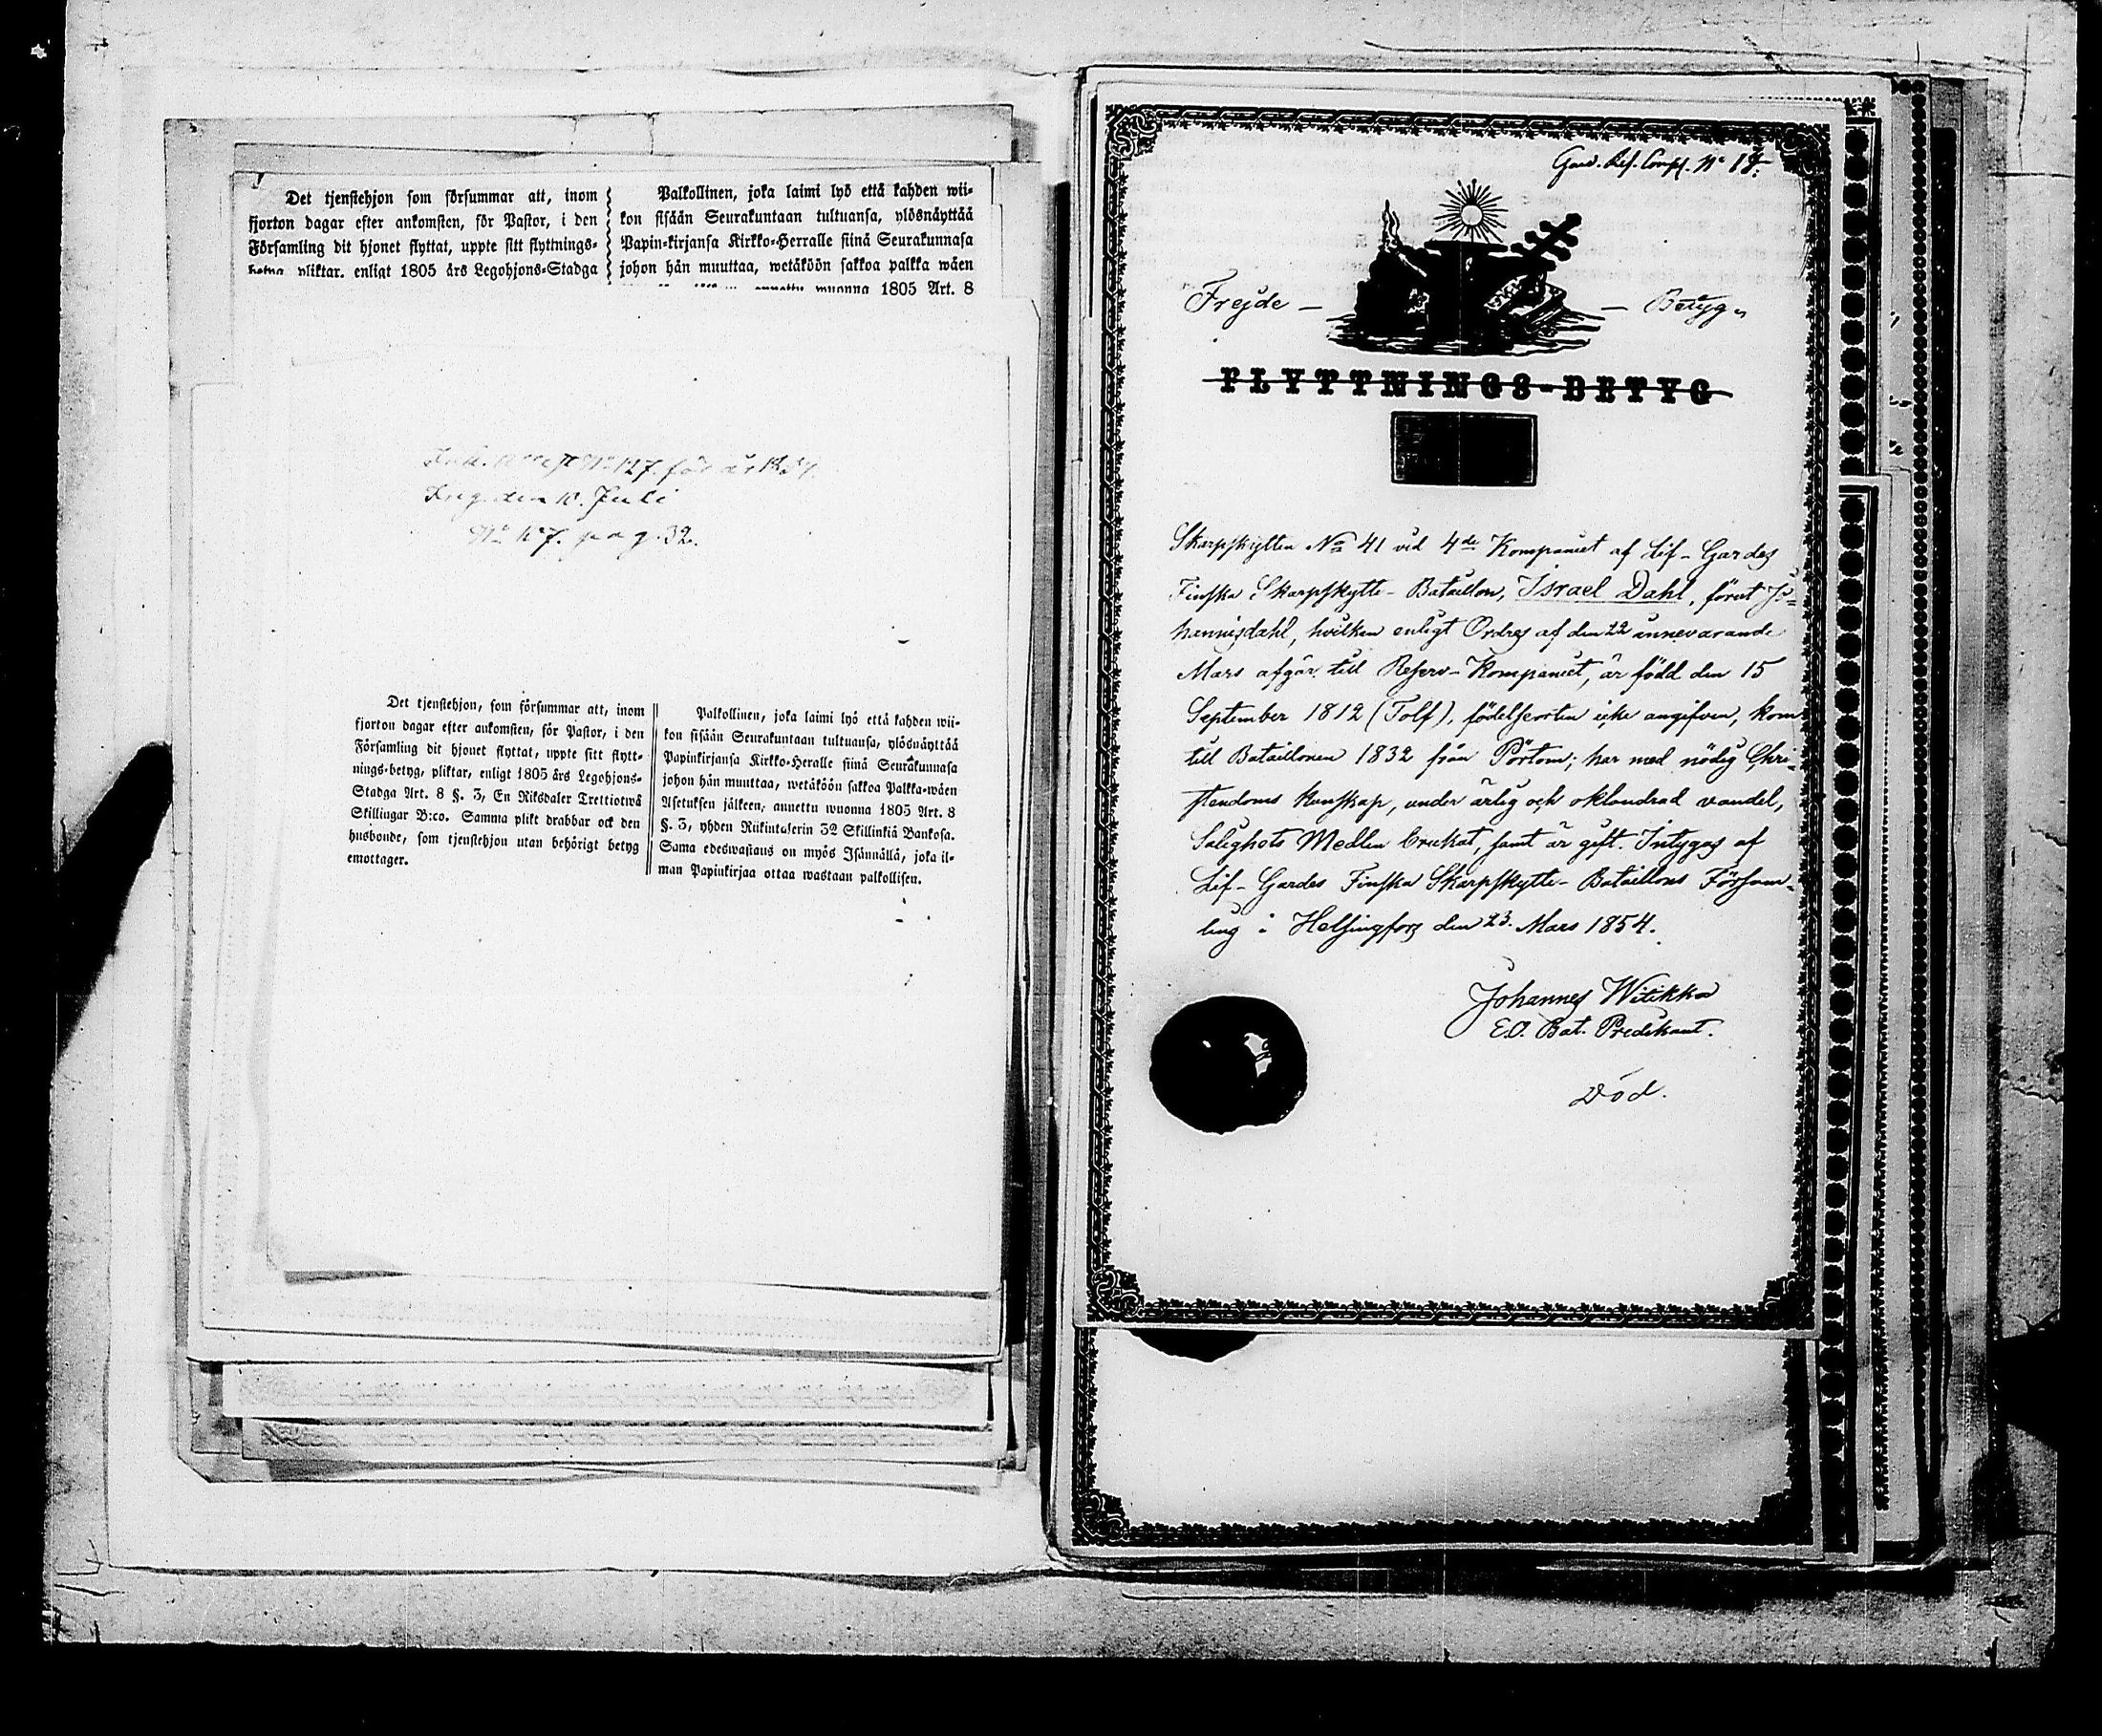 Det tjenstehjon som försummar att, inom
fjorton dagar efter ankomsten, för Pastor, i den
Församling dit hjonet flyttat, uppte sitt flyttnings-
betyg pliktar, enligt 1805 års Legohjons-Stadga
Palkollinen, joka laimi lyö että kahden wii-
kon sisään Seurakuntaan tultuansa, ylösnäyttää
Papin-kirjansa Kirkko-Herralle siinä Seurakunnasa
johon hän muuttaa, wetäköön sakkoa palkka wäen
annettu wuonna 1805 Art. 8
No 127. för år
Ing. den 10. Juli
pag. 32.
Det tjenstehjon, som försummar att, inom
fjorton dagar efter ankomsten, för Pastor, i den
Församling dit hjonet flyttat, uppte sitt flytt-
nings-betyg, pliktar, enligt 1805 års Legohjons-
Stadga Art. 8 §. 3, En Riksdaler Trettiotwå
Skillingar B:co. Samma plikt drabbar ock den
husbonde, som tjenstehjon utan behörigt betyg
emottager.
Palkollinen, joka laimi lyö että kahden wii-
kon sisään Seurakuntaan tultuansa, ylösnäyttää
Papinkirjansa Kirkko-Heralle siinä Seurakunnasa
johon hän muuttaa, wetäköön sakkoa Palkka-wäen
Asetuksen jälkeen, annettu wuonna 1805 Art. 8
§. 3, yhden Riikintalerin 32 Skillinkiä Bankosa.
Sama edeswastaus on myös Isännällä, joka il-
man Papinkirjaa ottaa wastaan palkollisen.
Gard. Res. Comp. No
Frejde — — Betyg
FLYTTNINGS-BETYG
Skarpskytten No 41 vid 4de Kompaniet af Lif-Gardes
Finska Skarpskytte-Bataillon, Israel Dahl, förut Jo-
hannisdahl, hvilken enligt Ordres af den 22 innevarande
Mars afgår till Reserv-Kompaniet, är född den 15
September 1812 (Tolf), födelseorten icke angifven, kom
till Bataillonen 1832 från Pörtom; har med nödig Chri-
stendoms kunskap, under ärlig och oklandrad vandel,
Salighets Medlen brukat, samt är gift. Intygas af
Lif-Gardes Finska Skarpskytte-Bataillons Försam-
ling i Helsingfors den 23. Mars 1854.
Johannes Witikka
E.O. Bat. Predikant.
Död.